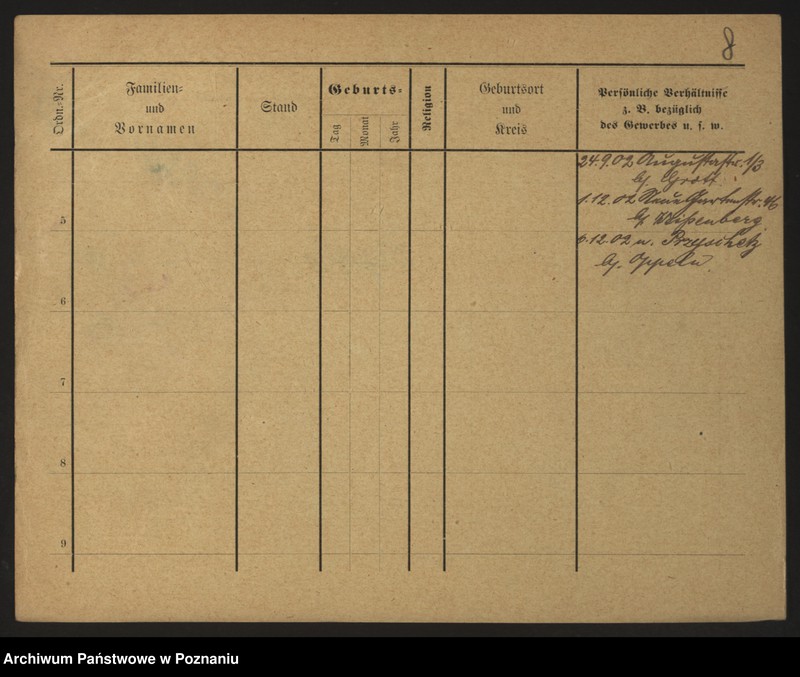 8
Ordn.-Nr.
Familien-
und
Vornamen
Stand
Geburts-
Tag
Monat
Jahr
Religion
Geburtsort
und
Kreis
Persönliche Verhältnisse
z. B. bezüglich
des Gewerbes u. s. w.
24.9.02 Augustastr. 1/3
bj. Grott
1.12.02 Neue Gartenstr. 46
bj. Weißenberg
12.02 n. Przyschetz
bj. Oppeln.
5
6
7
8
9
Archiwum Państwowe w Poznaniu